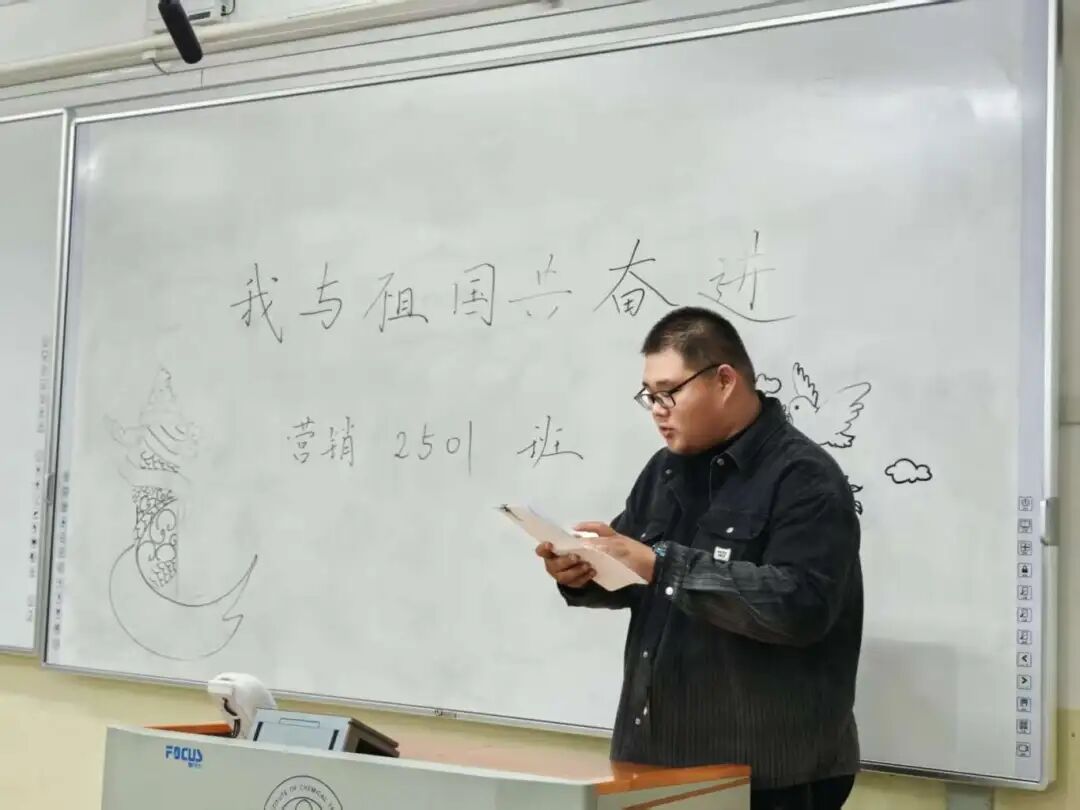 我与祖国共奋进
营销 2501 班
FOCUS
OF CHEMICAL